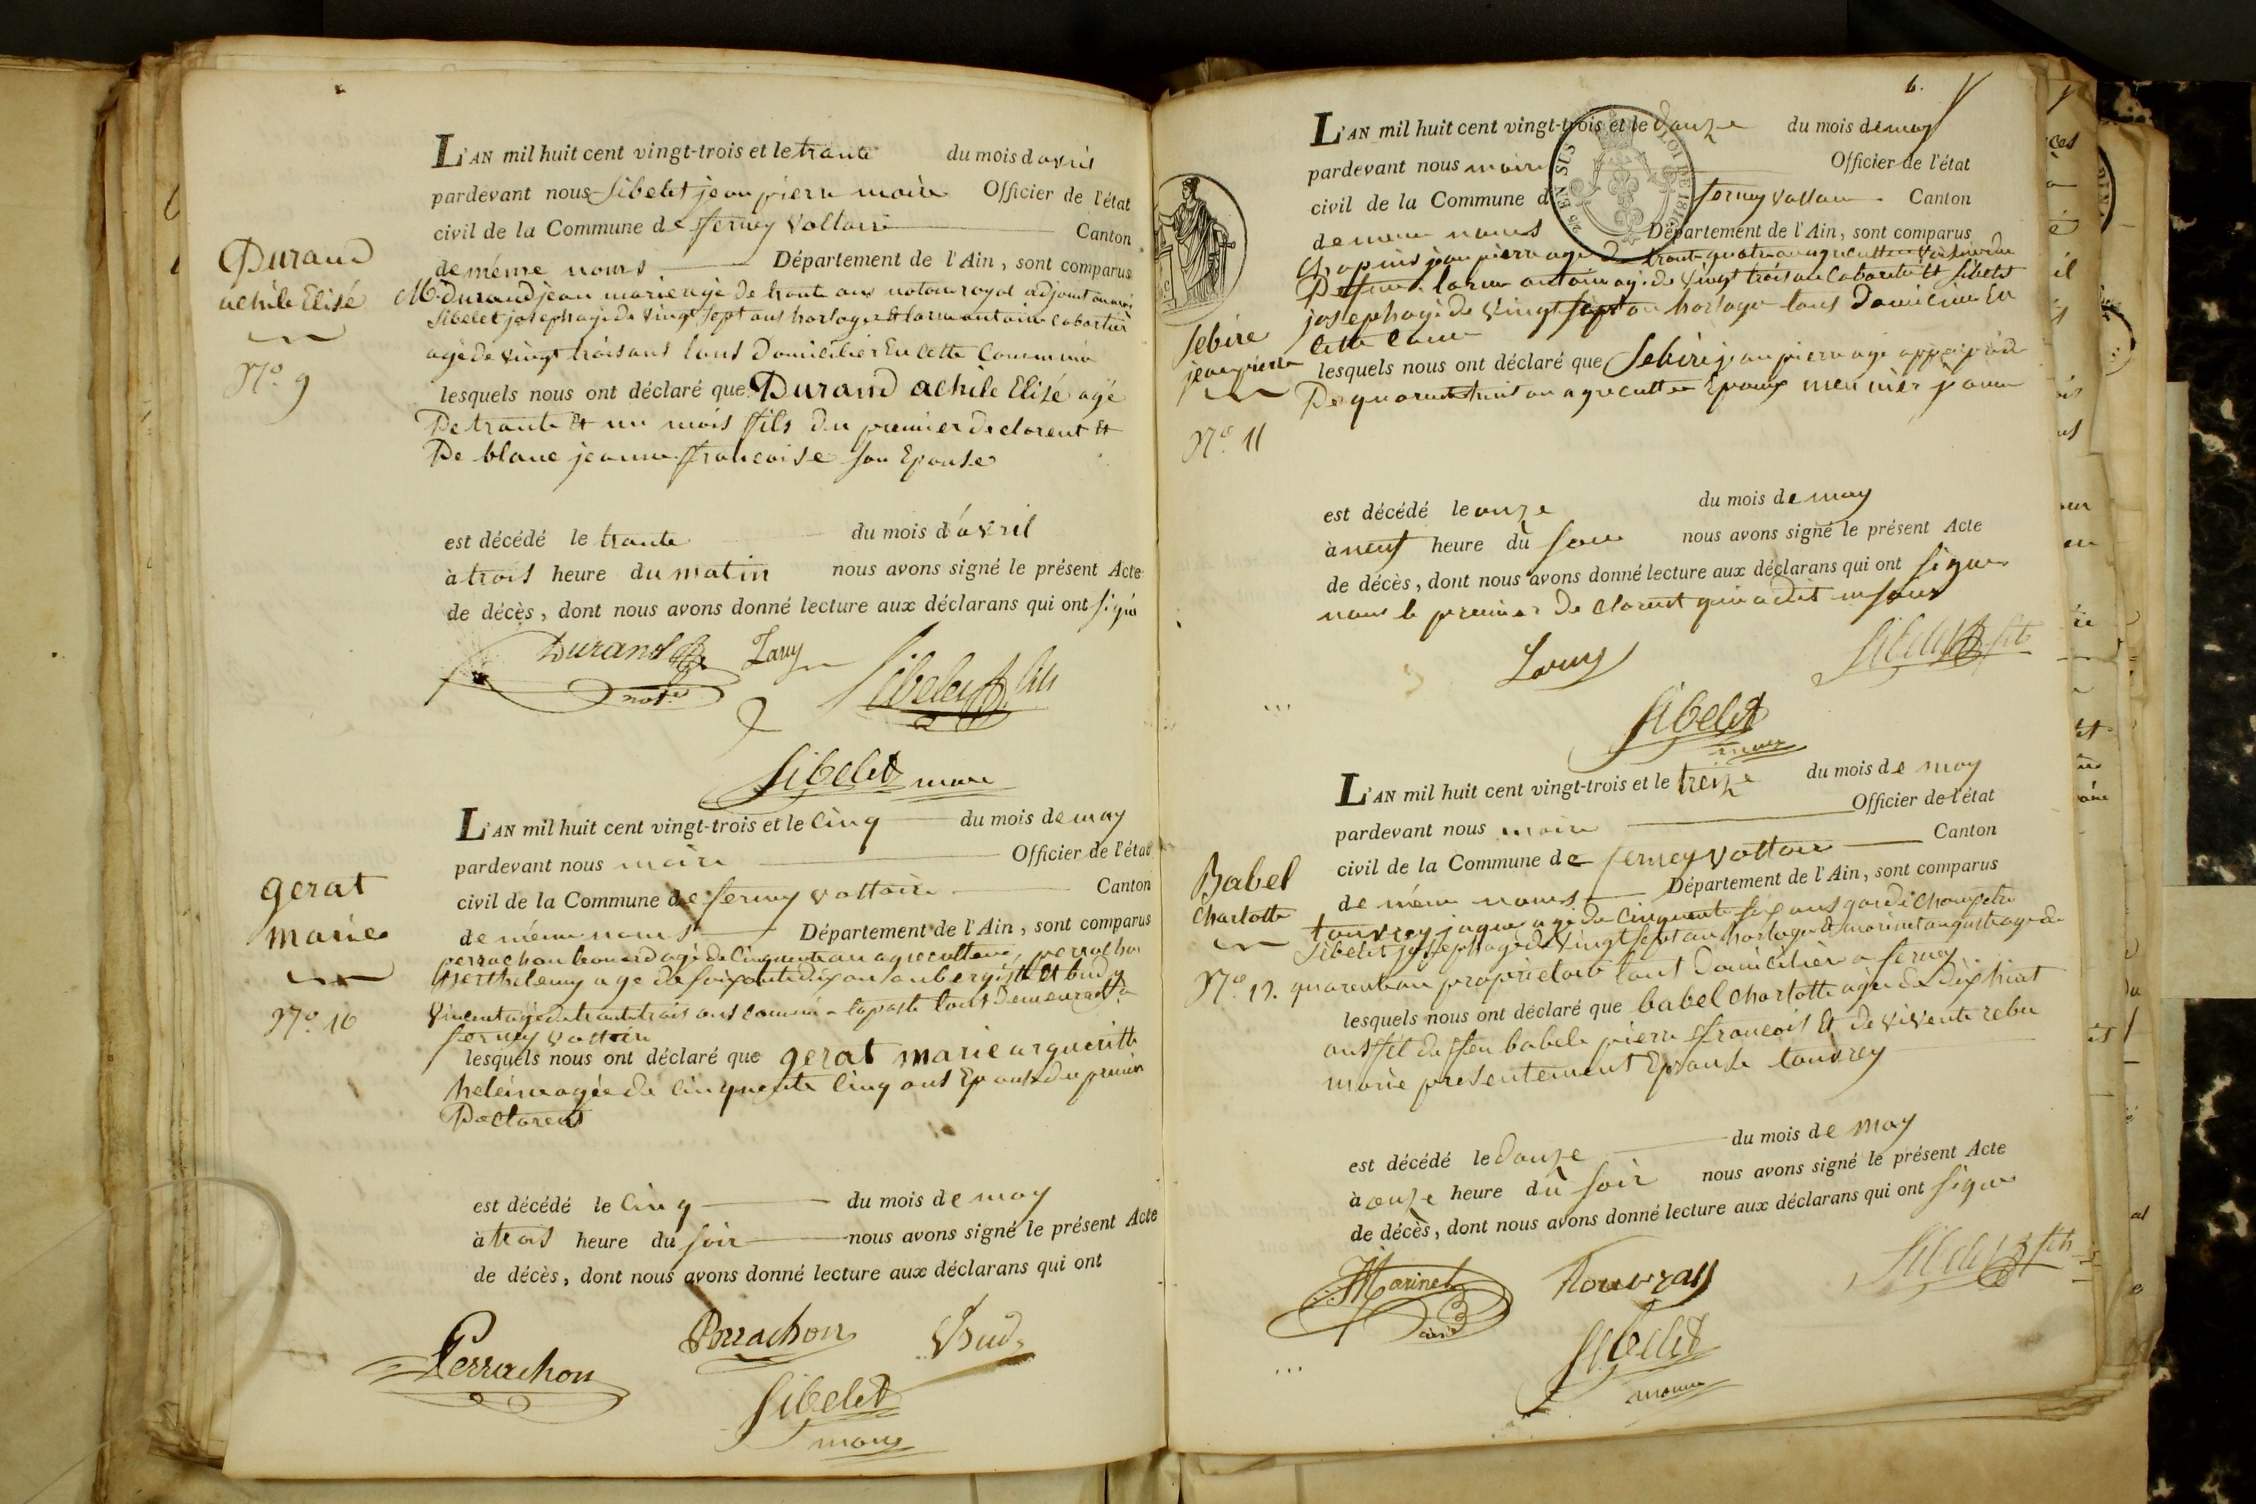 L'AN mil huit cent vingt-trois et le trante du mois d avril
pardevant nous Sibelet jean pierre maire Officier de l'état
civil de la Commune de ferney Voltaire Canton
de méme noms Département de l'Ain, sont comparus
M. durand jean marie agé de trante ans notaire royal adjoint au maire
Sibelet joseph agé de vingt sept ans horloger et larme antoine cabartier
agé de vingt trois ans tous Domicilier En cette Commune
lesquels nous ont déclaré que Durand achile Elisé agé
De trante et un mois fils du premier declarent et
De blanc jeanne francoise son Epouse
Durand
achile Elisé
N.º 9
est décédé le trante du mois d'avril
à trois heure du matin nous avons signé le présent Acte
de décès, dont nous avons donné lecture aux déclarans qui ont signé
Durand Larmy Sibelet fils
not.re
Sibelet maire
L'AN mil huit cent vingt-trois et le cinq du mois de may
pardevant nous maire Officier de l'état
civil de la Commune de ferney voltaire Canton
de méme noms Département de l'Ain, sont comparus
perrachon leonard agé de cinquante an agreculteur, perrachon
Berthelemy agé de soixante dix an aubergiste et budy
Vincent agé de trante trois ans commi a la poste tous Demeurant a
ferney voltaire
lesquels nous ont déclaré que gerat marie argueritte
heleine agée de cinquante cinq ans Epouse du premier
Declarent
gerat
marie
N.º 10
est décédé le cinq du mois de may
à trois heure du soir nous avons signé le présent Acte
de décès, dont nous avons donné lecture aux déclarans qui ont
Perrachon Perrachon Budy
Sibelet
maire
6.
L'AN mil huit cent vingt-trois et le douze du mois de may
pardevant nous maire Officier de l'état
civil de la Commune d ferney voltaire Canton
de meme noms Département de l'Ain, sont comparus
Chapuis jean pierre agé de trante quatre an agreculteur Voisin du
Defunt. larme antoine agé de vingt trois an cabaretié et Sibelet
joseph agé de vingt sept an horloger tous Domicilié En
cette comune
lesquels nous ont déclaré que Sebire jean pierre agé
De quarante huit an agreculteur Epoux meunier
Sebire
jean pierre
N.º 11
est décédé le onze du mois de may
à neuf heure du soir nous avons signé le présent Acte
de décès, dont nous avons donné lecture aux déclarans qui ont signer
nous le premier Declarent qui a dit
Larmy Sibelet fils
Sibelet
maire
L'AN mil huit cent vingt-trois et le treize du mois de may
pardevant nous maire Officier de l'état
civil de la Commune de ferney voltaire Canton
de méme noms Département de l'Ain, sont comparus
touvrey jaque agé de cinquante six ans garde champetre
Sibelet joseph agé de vingt sept an horloger et marinet auguste agé de
quarente an proprietaire tout Domicilier a ferney
lesquels nous ont déclaré que babel Charlotte agée de dix huit
ans fil de feu babel pierre francois et de vivente rebu
marie presentement Epouse touvrey
Babel
Charlotte
N.º 12.
est décédé le douze du mois de may
à onze heure du soir nous avons signé le présent Acte
de décès, dont nous avons donné lecture aux déclarans qui ont signer
Marinet Touvray Sibelet fils
Sibelet
maire